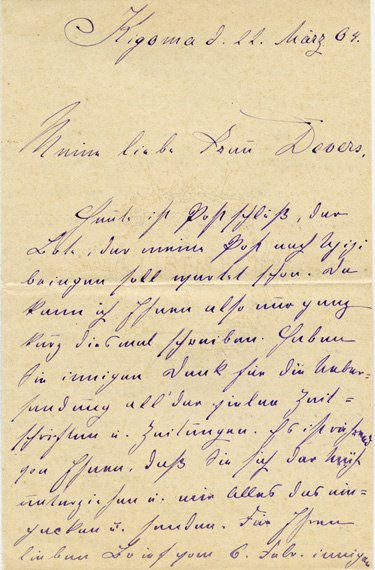 Kigoma d. 22. März 04.
Meine liebe Frau Devers,
Heute ist Postschluß, der
Bote, der meine Post nach Ujiji
bringen soll wartet schon. Da
kann ich Ihnen also nur ganz
kurz diesmal schreiben. Haben
Sie innigen Dank für die Ueber-
sendung all der vielen Zeit-
schriften u. Zeitungen. Es ist rührend
von Ihnen, daß Sie sich der Müh
unterziehen u. mir alles das ein-
packen u. senden. Für Ihren
lieben Brief vom 6. Febr. innigen